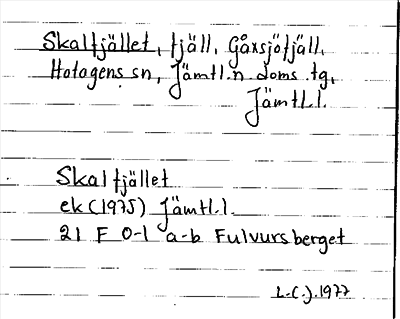 Skalfjället, fjäll, Gåxsjöfjäll,
Hotagens sn, Jämtl.n doms.tg,
Jämtl.l.
Skalfjället
ek (1975) Jämtl.l.
21 F 0-1 a-b Fulvurs berget
L.C.J. 1977